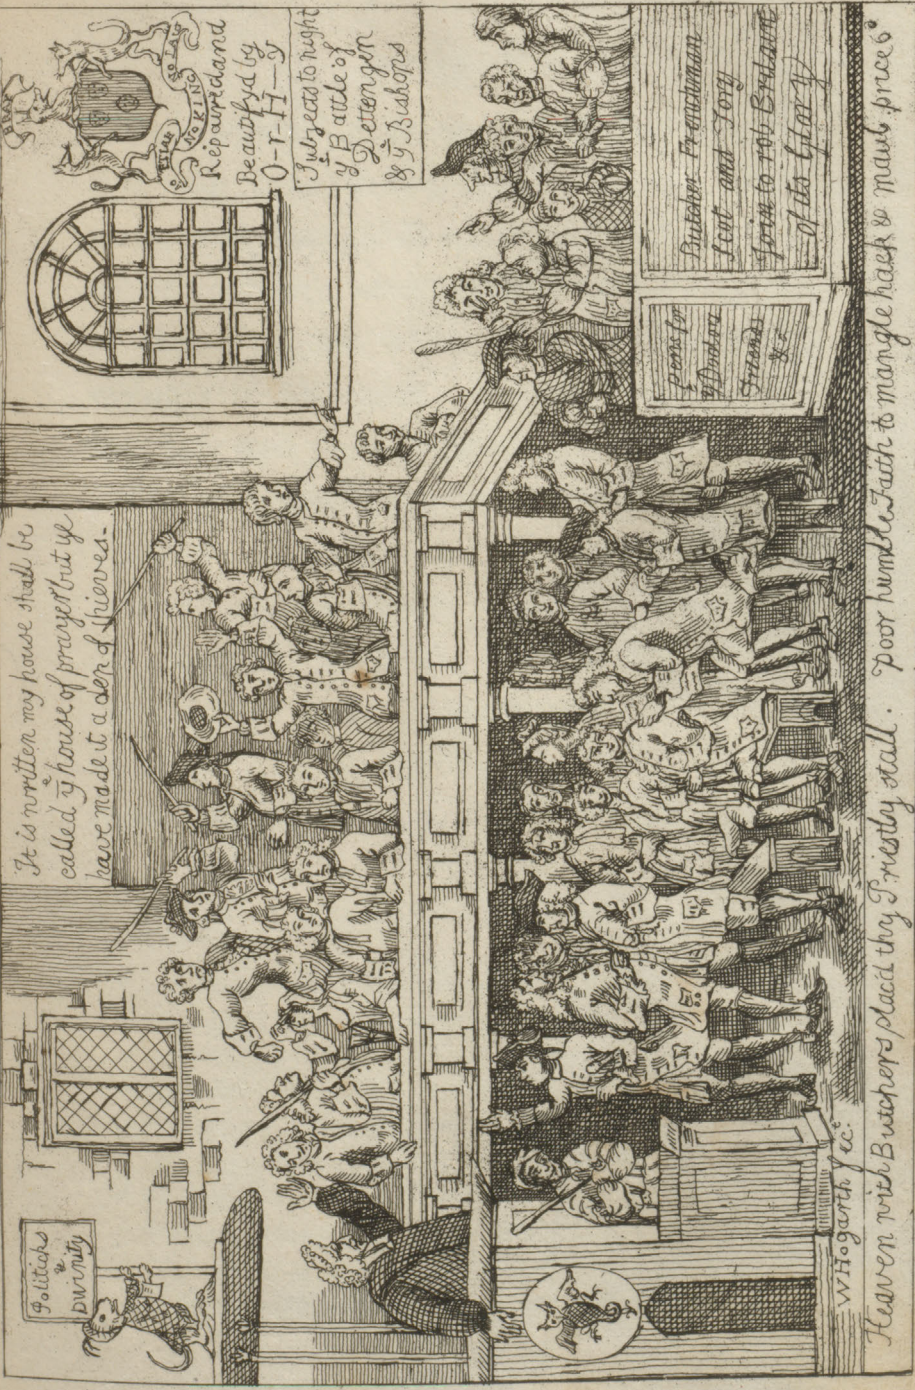 Politicks
&
Divinity
It is written my house shall be
called yᵉ house of prayer but ye
have made it a den of thieves.
NO KING
Repair'd and
Beautifyd by
O-r H-y
as to night
yᵉ Battle of
Dettengen
& yᵉ Bishops
Butcher Frenchman
Scot and Tory
Join to rob Britain
of its Glory
for
yᵉ
Friends
&c
W Hogarth fecᵗ
Heaven with Butchers plac'd thy Priestly stall . poor humble Faith to mangle hack & maul price